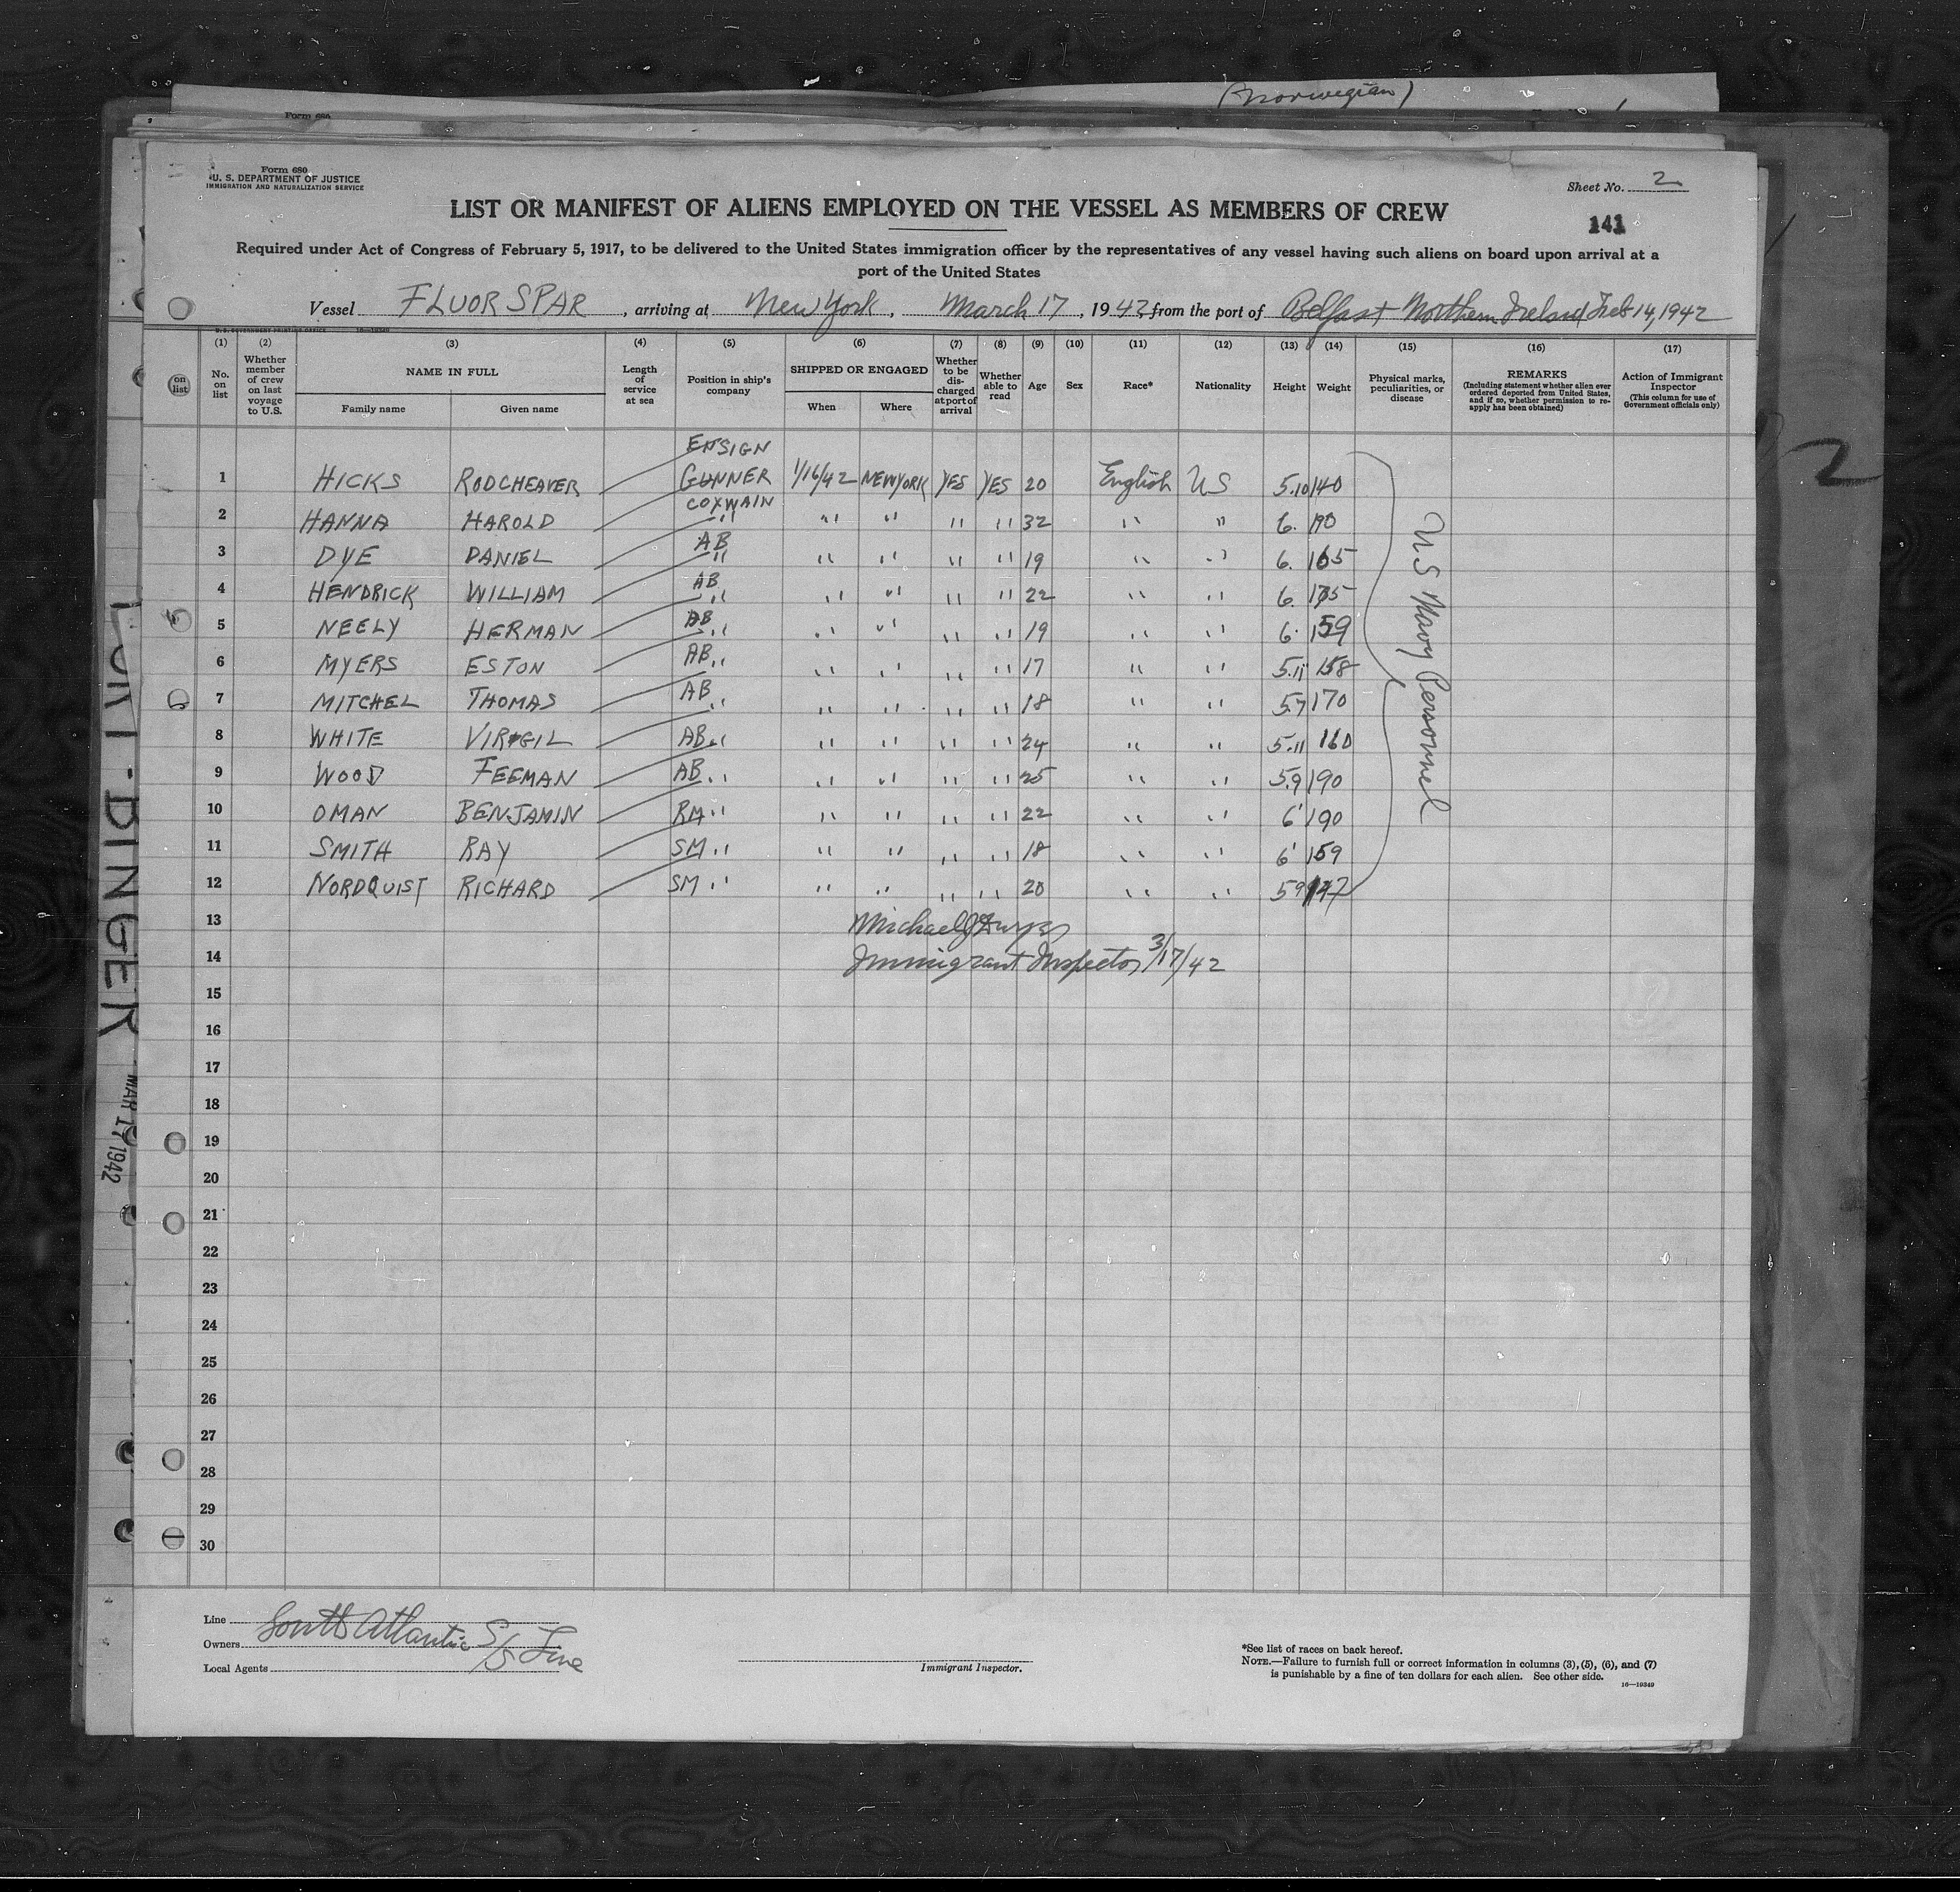 (Norwegian)
Form 680
Form 680
U. S. DEPARTMENT OF JUSTICE
IMMIGRATION AND NATURALIZATION SERVICE
Sheet No. 2
LIST OR MANIFEST OF ALIENS EMPLOYED ON THE VESSEL AS MEMBERS OF CREW
141
Required under Act of Congress of February 5, 1917, to be delivered to the United States immigration officer by the representatives of any vessel having such aliens on board upon arrival at a
port of the United States
Vessel FLUOR SPAR, arriving at New York, March 17, 1942, from the port of Belfast Northern Ireland Feb 14, 1942
(1) (2) (3) (4) (5) (6) (7) (8) (9) (10) (11) (12) (13) (14) (15) (16) (17)
on list
No. on list
Whether member of crew on last voyage to U.S.
NAME IN FULL
Family name Given name
Length of service at sea
Position in ship's company
SHIPPED OR ENGAGED
When Where
Whether to be discharged at port of arrival
Whether able to read
Age
Sex
Race*
Nationality
Height
Weight
Physical marks, peculiarities, or disease
REMARKS
(Including statement whether alien ever ordered deported from United States, and if so, whether permission to reapply has been obtained)
Action of Immigrant Inspector
(This column for use of Government officials only)
ENSIGN
1 HICKS RODCHEAVER GUNNER 1/16/42 NEW YORK YES YES 20 English US 5.10 140
COXWAIN
2 HANNA HAROLD " " " " " 32 " " 6. 190
AB
3 DYE DANIEL " " " " " 19 " " 6. 165
AB
4 HENDRICK WILLIAM " " " " " 22 " " 6. 175
AB
5 NEELY HERMAN " " " " " 19 " " 6. 159
6 MYERS ESTON AB " " " " " 17 " " 5.11 158
7 MITCHEL THOMAS AB " " " " " 18 " " 5.7 170
8 WHITE VIRGIL AB " " " " " 24 " " 5.11 160
9 WOOD FEEMAN AB " " " " " 25 " " 5.9 190
10 OMAN BENJAMIN RM " " " " " 22 " " 6' 190
11 SMITH RAY SM " " " " " 18 " " 6' 159
12 NORDQUIST RICHARD SM " " " " " 20 " " 59 147
U.S Navy Personnel
2
13 Michael
14 Immigrant Inspector 3/17/42
15
16
17
18
19
20
21
22
23
24
25
26
27
28
29
30
BINGER
MAR 17 1942
Line
Owners South Atlantic S/S Line
Local Agents
Immigrant Inspector.
*See list of races on back hereof.
NOTE.—Failure to furnish full or correct information in columns (3), (5), (6), and (7)
is punishable by a fine of ten dollars for each alien. See other side.
16—19349